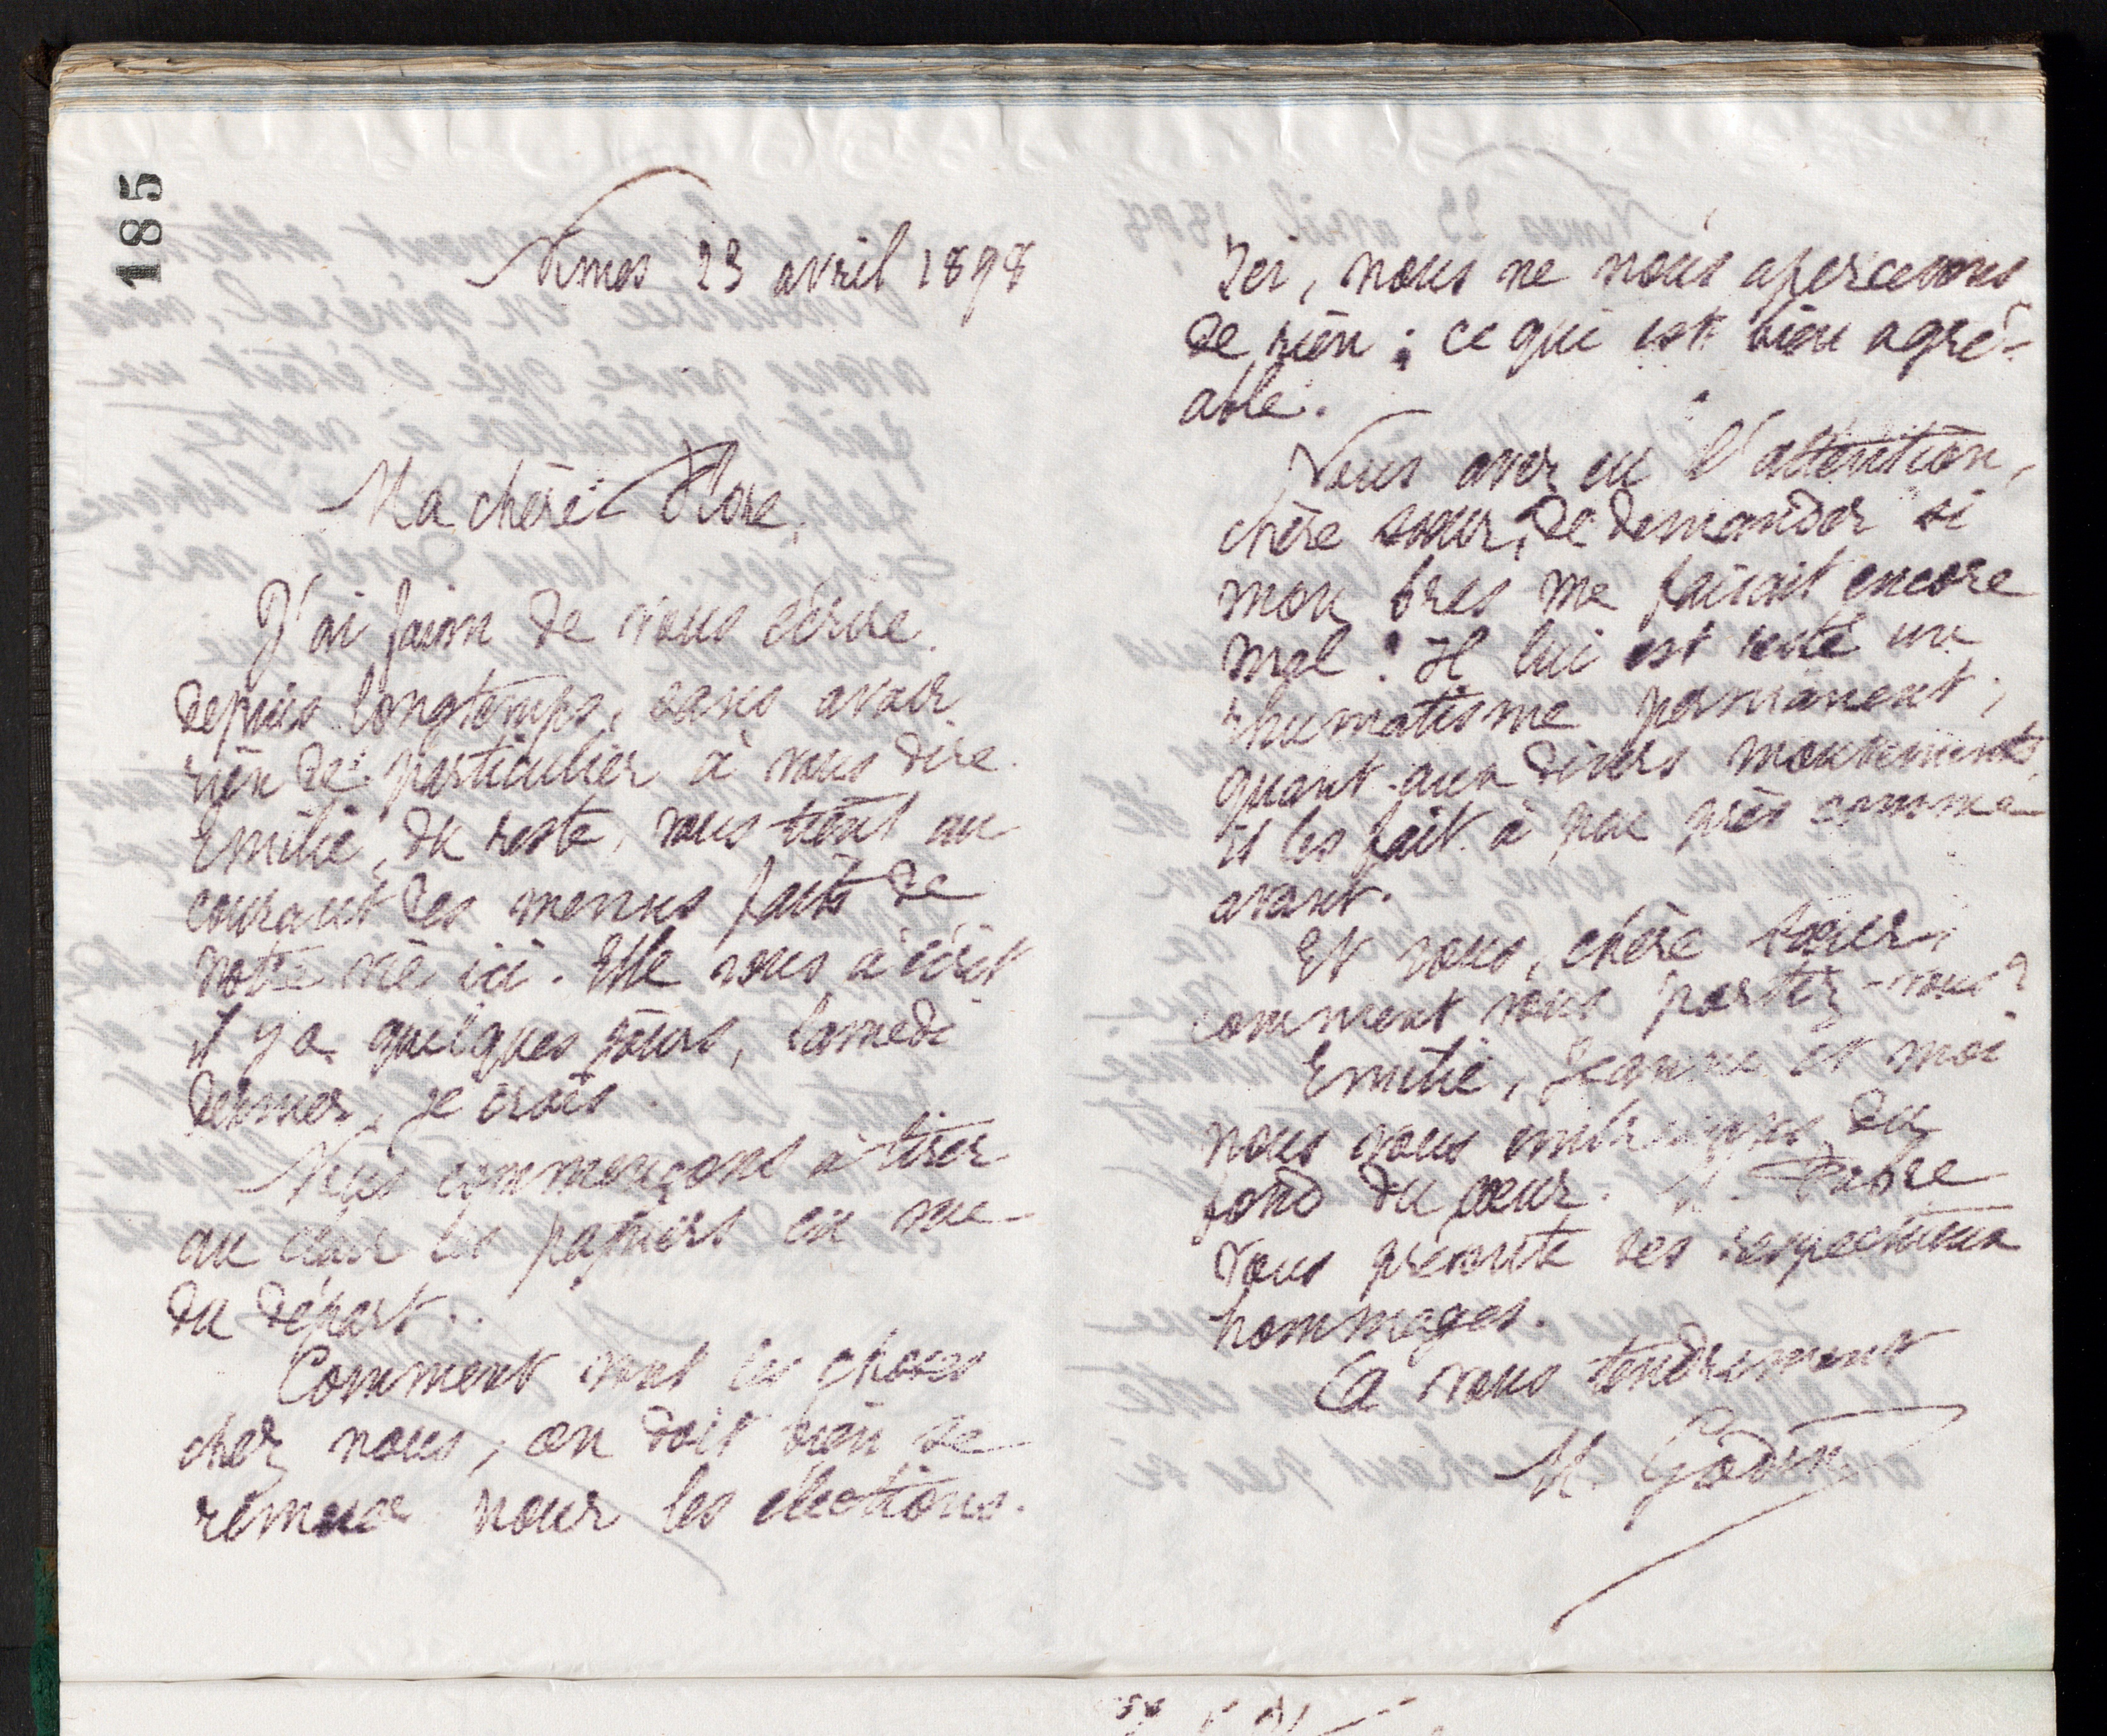 185
Nimes 23 avril 1898
Ma chère Flore,
J'ai faim de vous écrire
depuis longtemps, sans avoir
rien de particulier à vous dire.
Emilie, du reste, vous tient au
courant des menus faits de
notre vie ici. Elle vous a écrit
il y a quelques jours, samedi
dernier, je crois.
Nous commençons à tirer
au clair les papiers en vue
du départ.
Comment vont les choses
chez nous; on doit bien se
remuer pour les élections.
Ici, nous ne nous apercevons
de rien; ce qui est bien agré-
able.
Vous avez eu l'attention,
chère sœur, de demander si
mon bras me faisait encore
mal! Il lui est resté un
rhumatisme permanent;
quant aux divers mouvements,
il les fait à peu près comme
avant.
Et vous, chère sœur,
comment vous portez-vous?
Emilie, Jeanne et moi
nous vous embrassons du
fond du cœur. M. Fabre
vous présente ses respectueux
hommages.
A vous tendrement
M. Godin